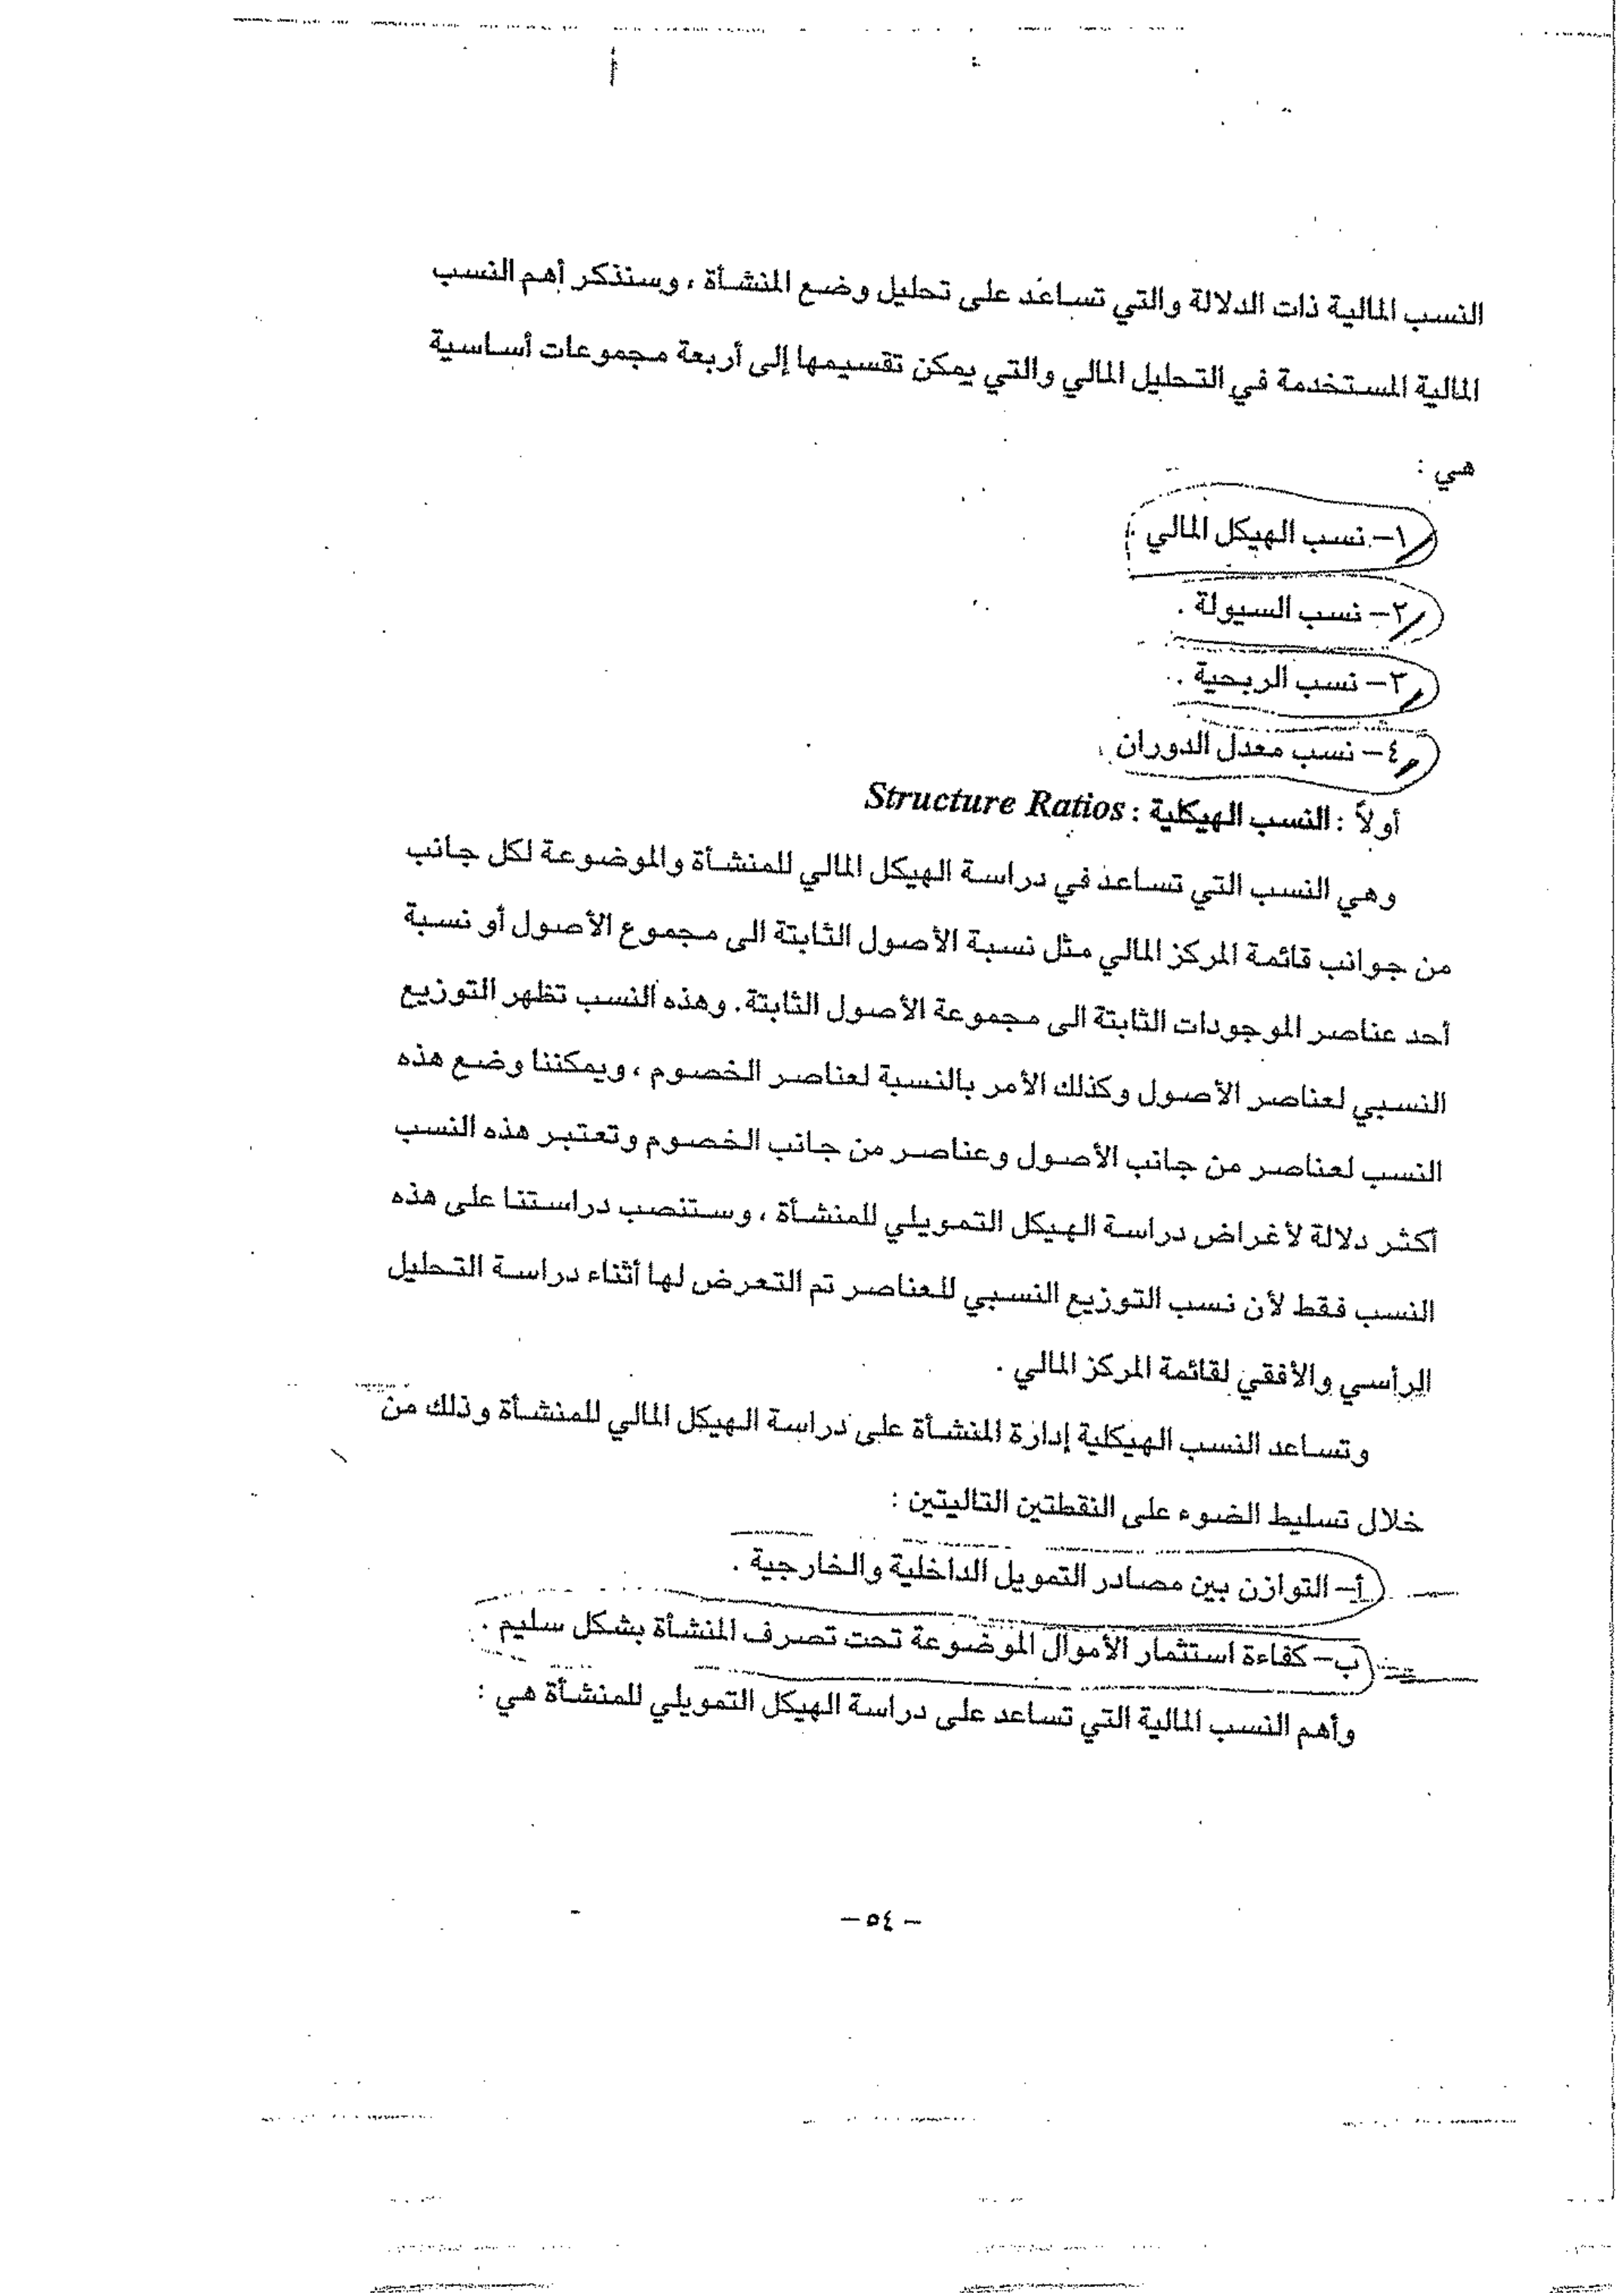 النسب المالية ذات الدلالة والتي تساعد على تحليل وضع المنشأة ، وسنذكر أهم النسب
المالية المستخدمة في التحليل المالي والتي يمكن تقسيمها إلى أربعة مجموعات أساسية
هي :
١– نسب الهيكل المالي .
٢– نسب السيولة .
٣– نسب الربحية .
٤– نسب معدل الدوران .
أولاً : النسب الهيكلية : Structure Ratios
وهي النسب التي تساعد في دراسة الهيكل المالي للمنشأة والموضوعة لكل جانب
من جوانب قائمة المركز المالي مثل نسبة الأصول الثابتة الى مجموع الأصول أو نسبة
أحد عناصر الموجودات الثابتة الى مجموعة الأصول الثابتة. وهذه النسب تظهر التوزيع
النسبي لعناصر الأصول وكذلك الأمر بالنسبة لعناصر الخصوم ، ويمكننا وضع هذه
النسب لعناصر من جانب الأصول وعناصر من جانب الخصوم وتعتبر هذه النسب
أكثر دلالة لأغراض دراسة الهيكل التمويلي للمنشأة ، وستنصب دراستنا على هذه
النسب فقط لأن نسب التوزيع النسبي للعناصر تم التعرض لها أثناء دراسة التحليل
الرأسي والأفقي لقائمة المركز المالي .
وتساعد النسب الهيكلية إدارة المنشأة على دراسة الهيكل المالي للمنشأة وذلك من
خلال تسليط الضوء على النقطتين التاليتين :
أ– التوازن بين مصادر التمويل الداخلية والخارجية .
ب– كفاءة استثمار الأموال الموضوعة تحت تصرف المنشأة بشكل سليم .
وأهم النسب المالية التي تساعد على دراسة الهيكل التمويلي للمنشأة هي :
– ٥٤ –